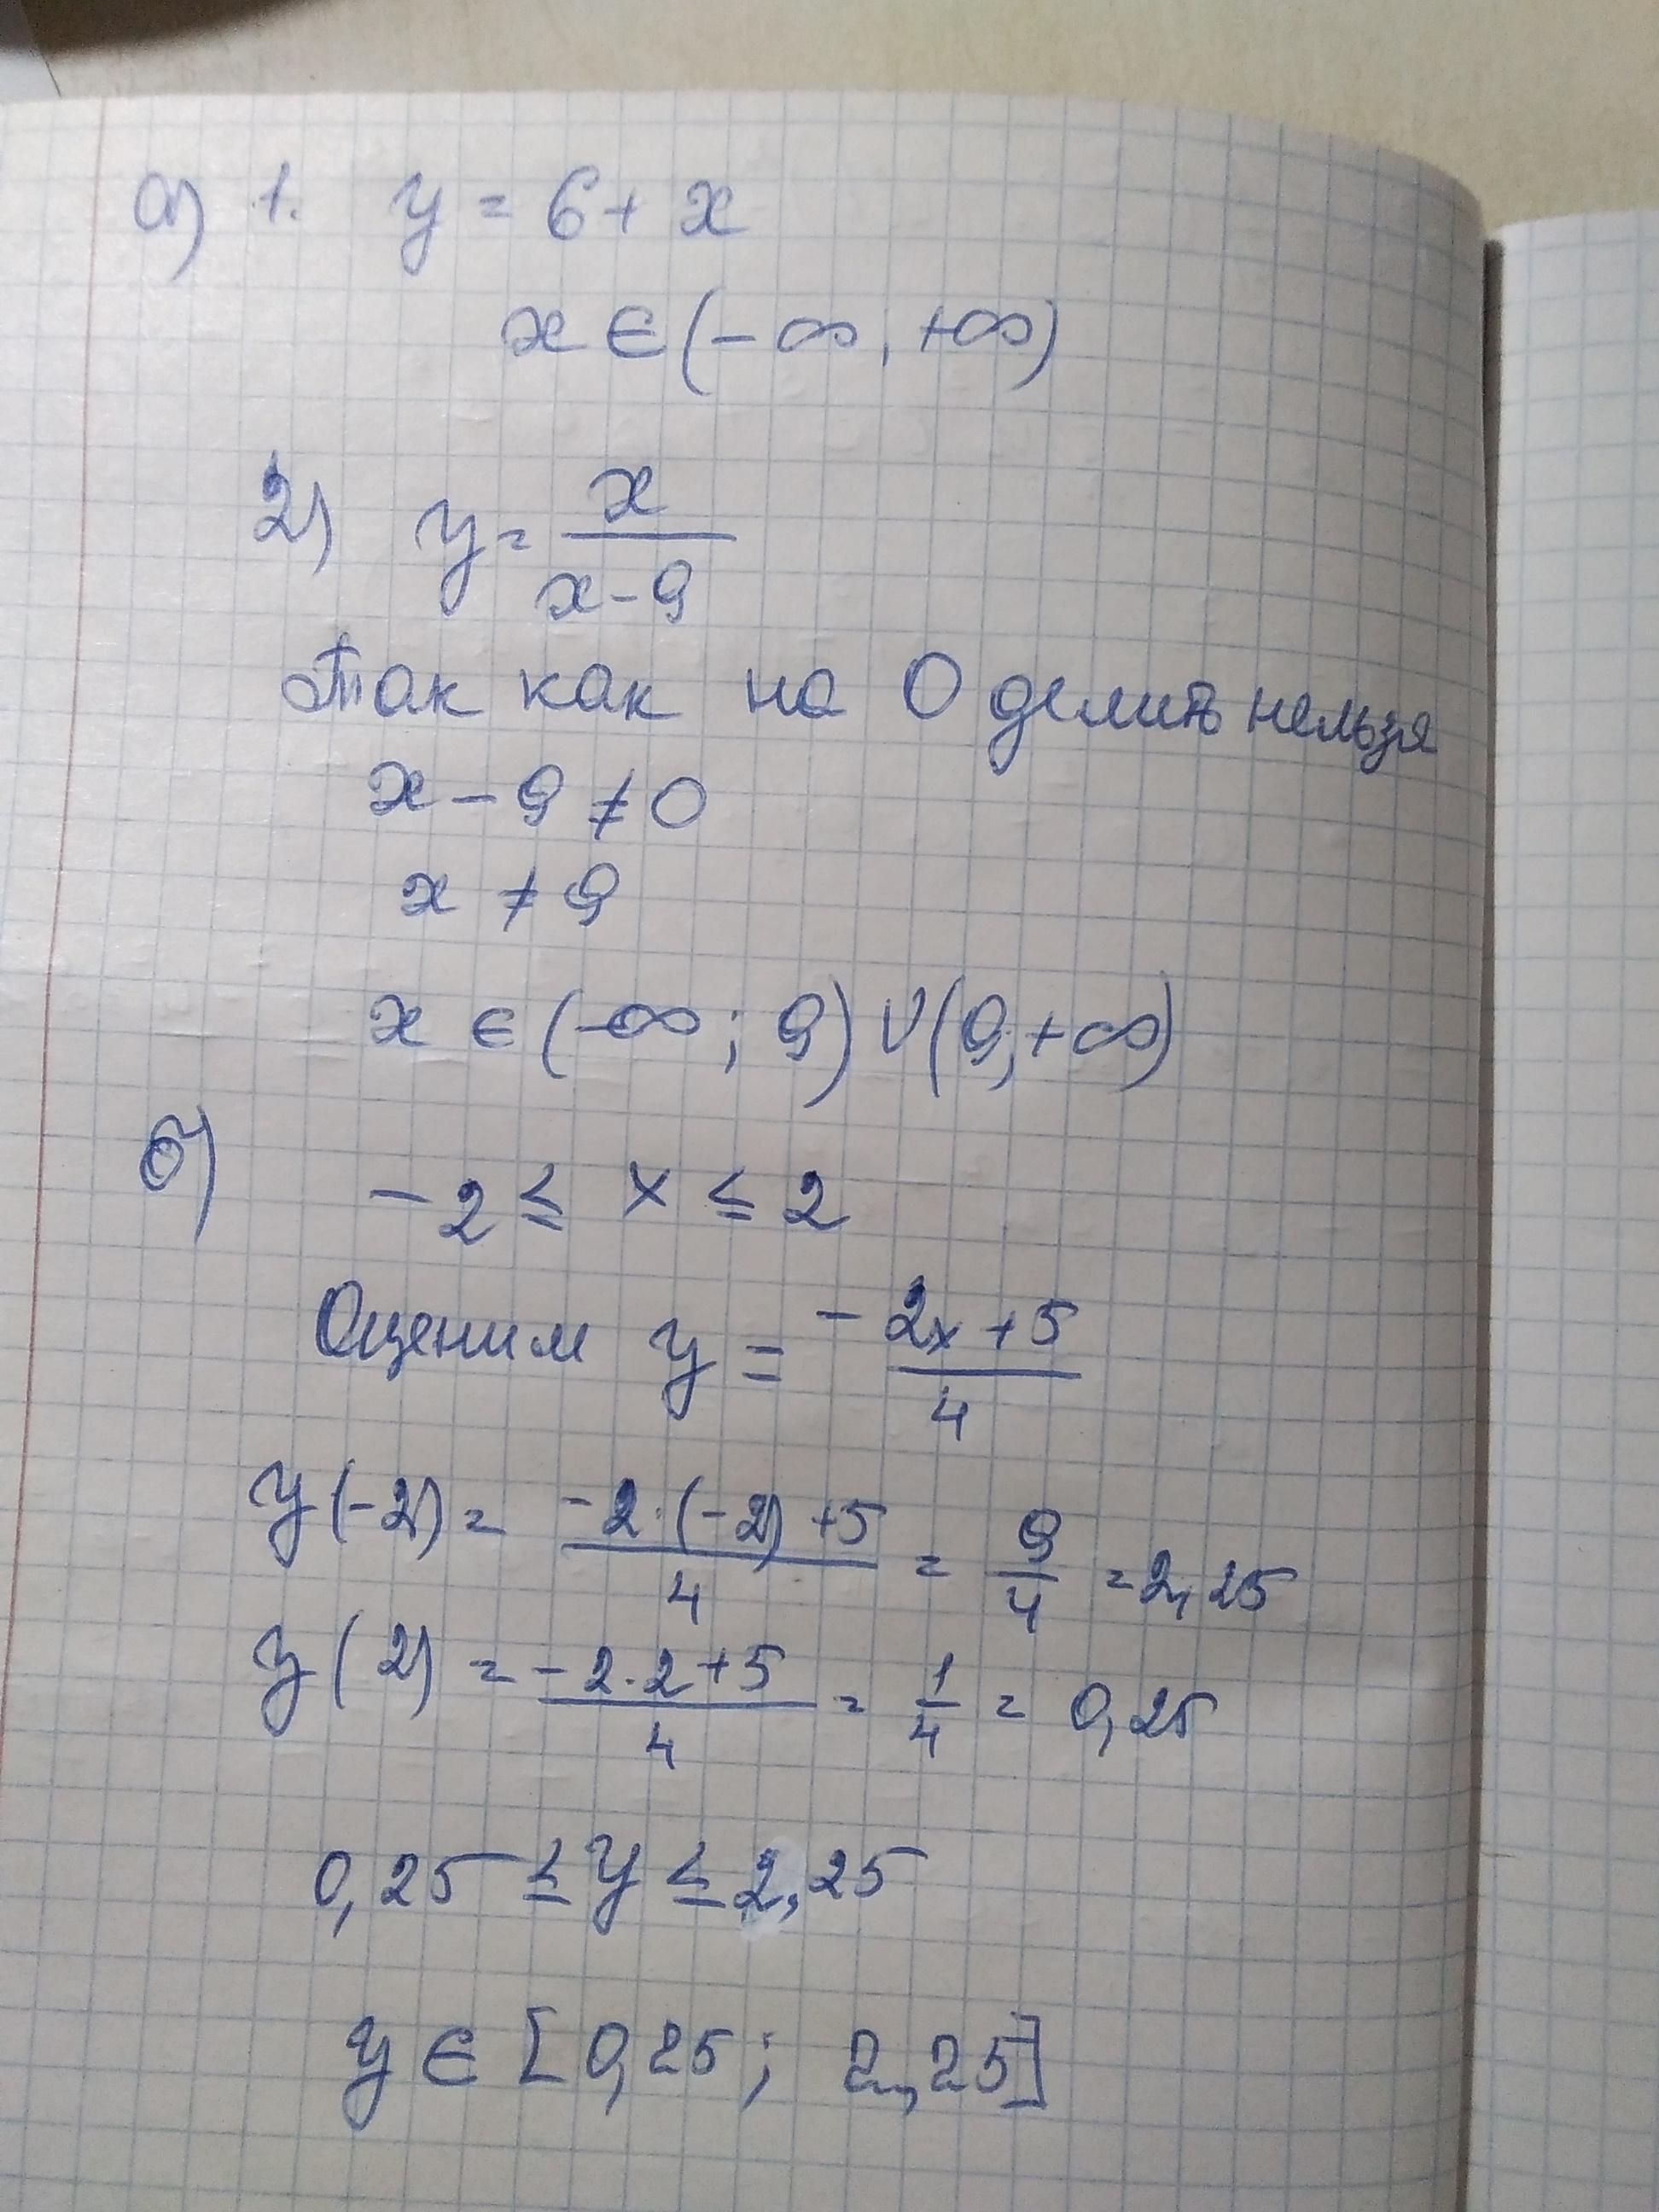 а) 1. y = 6 + x
x ∈ (-∞, +∞)
2) y = x/(x-9)
Так как на 0 делить нельзя
x - 9 ≠ 0
x ≠ 9
x ∈ (-∞; 9) ∪ (9; +∞)
б)
-2 ≤ x ≤ 2
Оценим y = (-2x + 5)/4
y(-2) = (-2·(-2)+5)/4 = 9/4 = 2,25
y(2) = (-2·2+5)/4 = 1/4 = 0,25
0,25 ≤ y ≤ 2,25
y ∈ [0,25; 2,25]